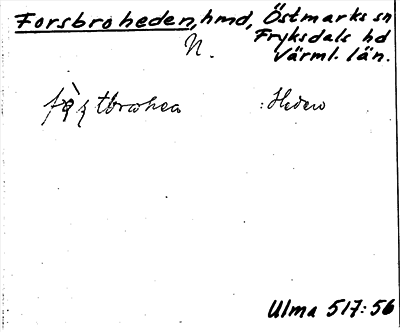 Forsbroheden, hmd, Östmarks sn
Fryksdals hd
N. Värml. län.
: Heden
Ulma 517:56